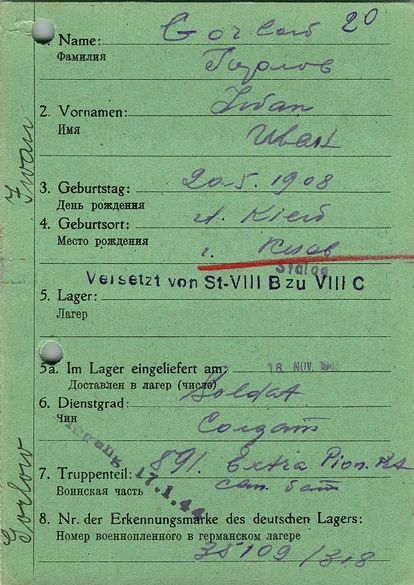 20
1. Name: Gorlow
Фамилия
Горлов
2. Vornamen: Iwan
Имя Иван
3. Geburtstag: 20.5.1908
День рождения
4. Geburtsort: st. Kiew
Место рождения г. Киев
Stalag
Versetzt von St-VIII B zu VIII C
5. Lager:
Лагерь
5a. Im Lager eingeliefert am: 16. NOV.
Доставлен в лагерь (число)
6. Dienstgrad: Soldat
Чин Солдат
Eingang 17.1.44
7. Truppenteil: 891. Extra Pion.
Воинская часть сап. бат
8. Nr. der Erkennungsmarke des deutschen Lagers:
Номер военнопленного в германском лагере
35109/318
Iwan
Gorlow